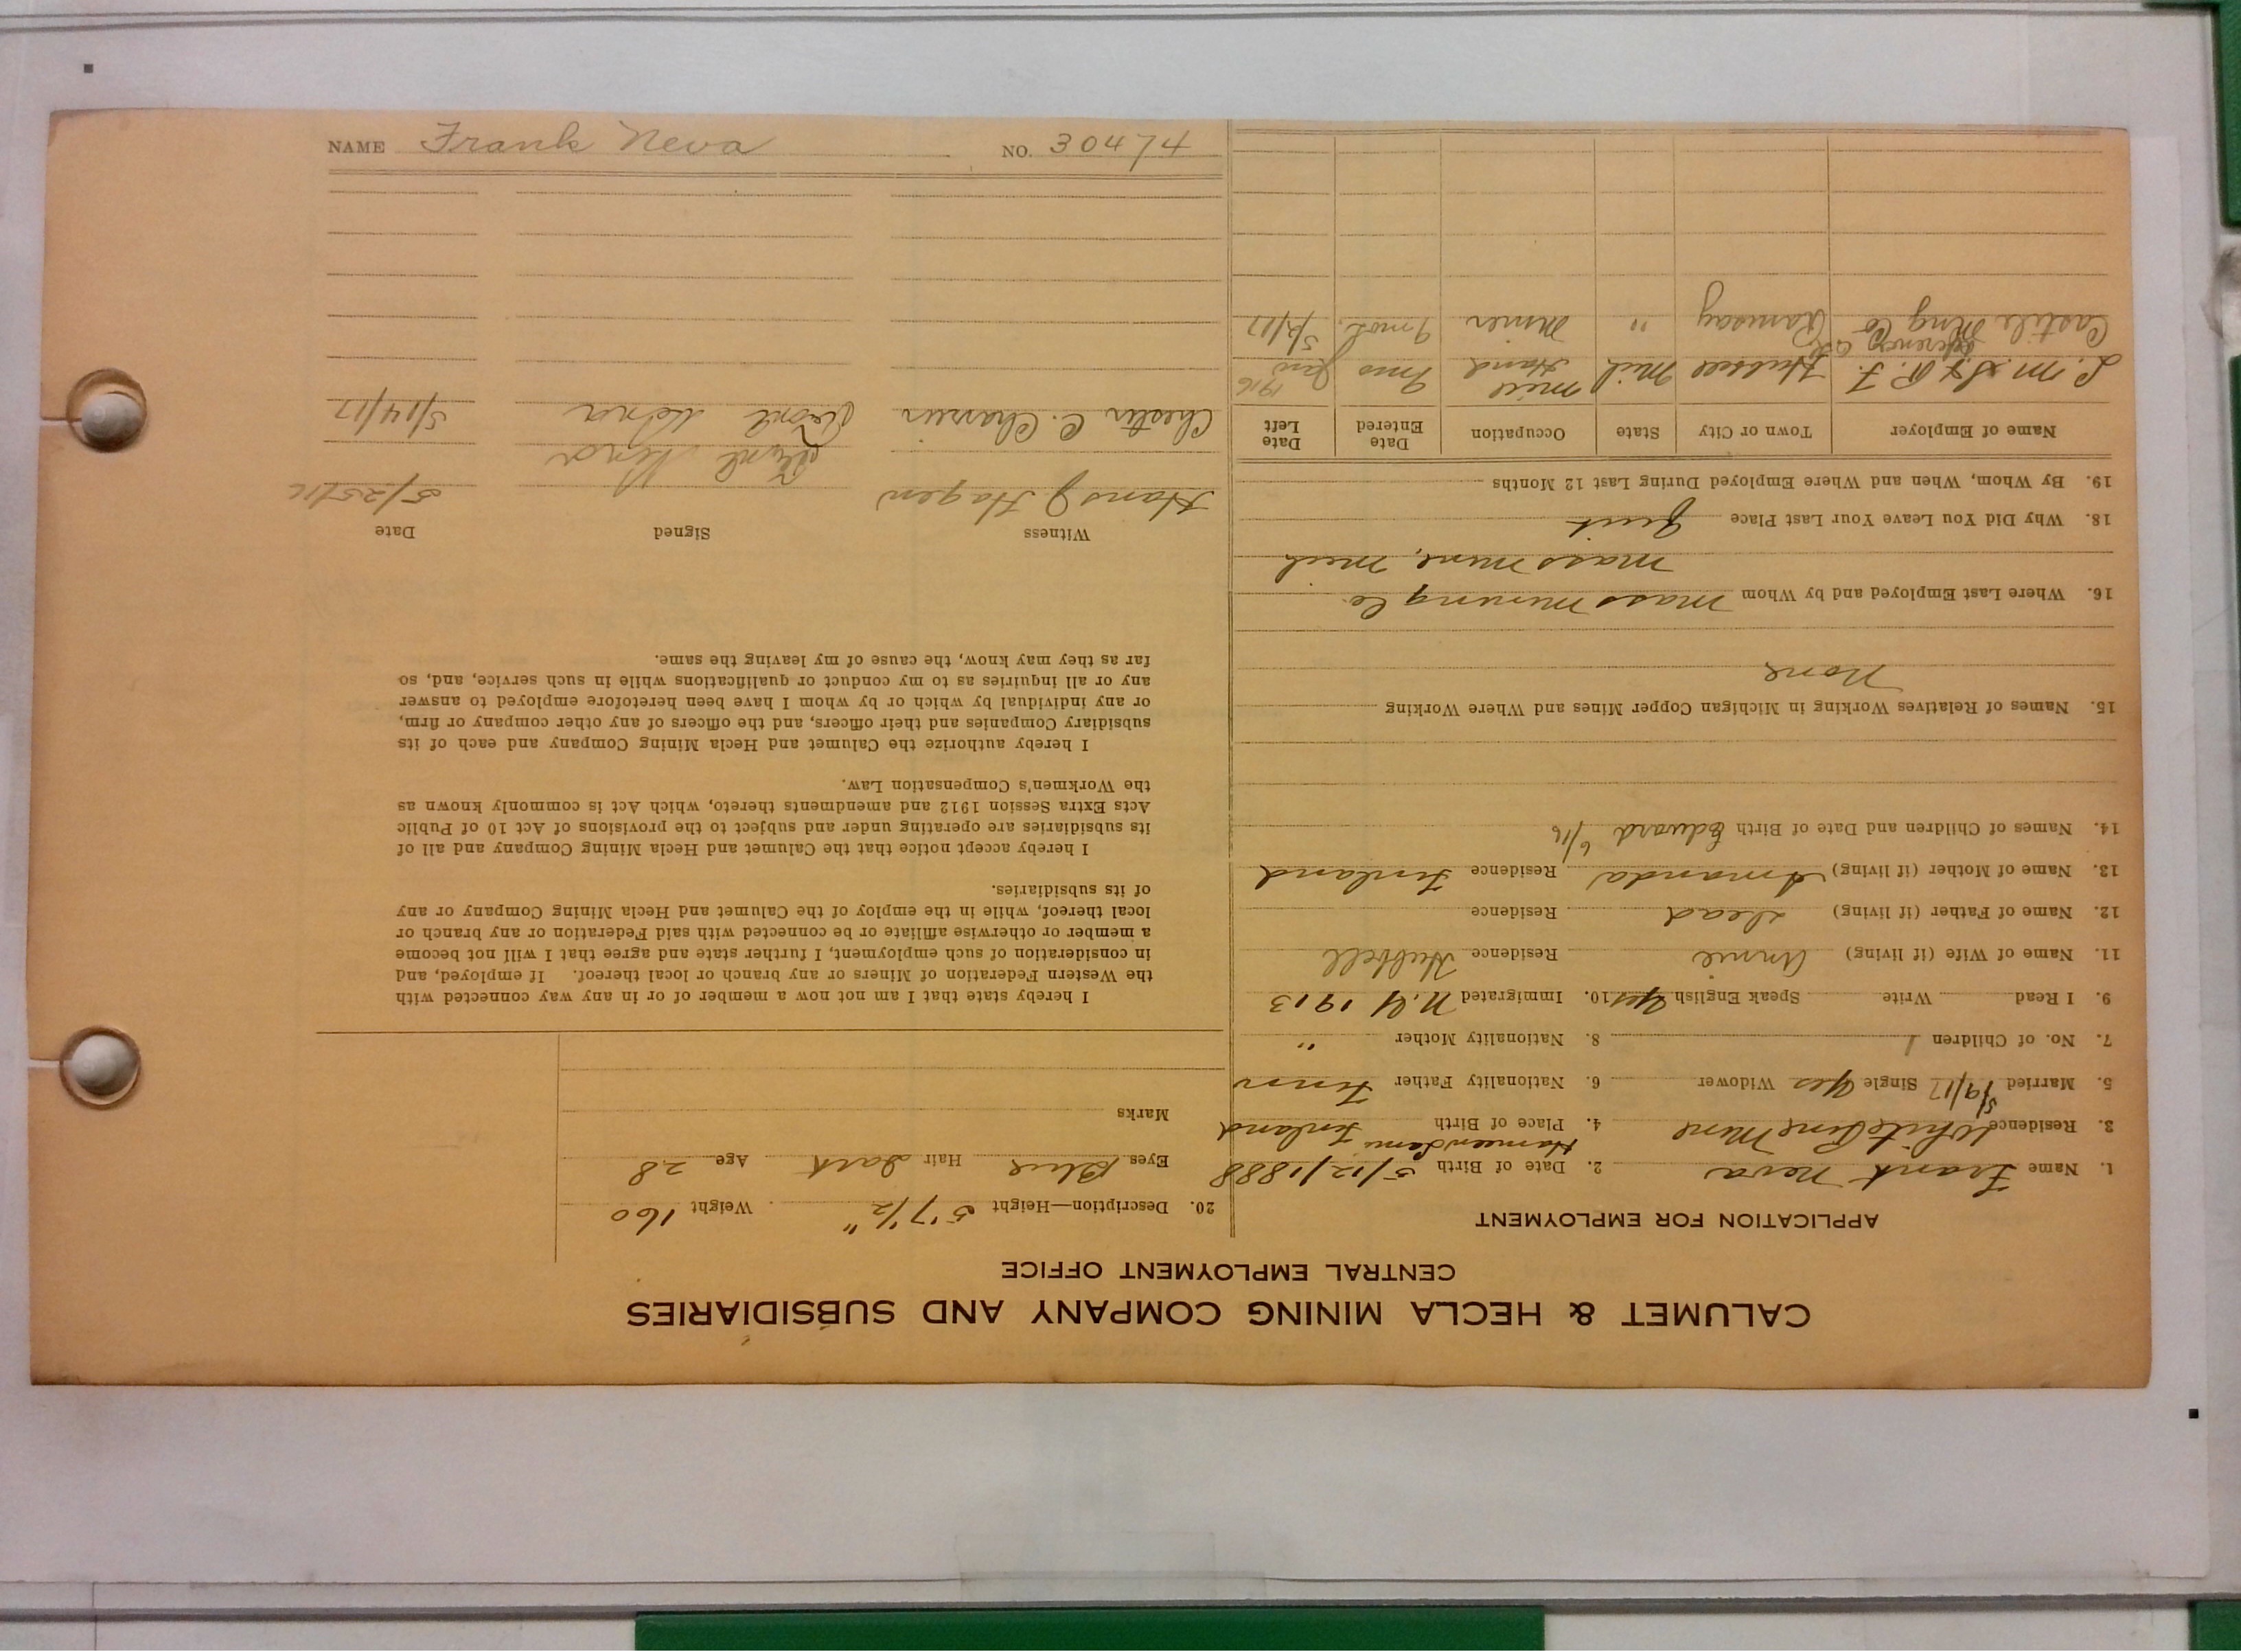 CALUMET & HECLA MINING COMPANY AND SUBSIDIARIES
CENTRAL EMPLOYMENT OFFICE
APPLICATION FOR EMPLOYMENT
1. Name Frank Neva 2. Date of Birth 5/12/1888
3. Residence White Pine Mine 4. Place of Birth Finland
5. Married 5/19/17 Single Yes Widower 6. Nationality Father Finn
7. No. of Children 1 8. Nationality Mother "
9. I Read Write Speak English Yes 10. Immigrated N.Y 1913
11. Name of Wife (if living) Annie Residence Hubbell
12. Name of Father (if living) Dead Residence
13. Name of Mother (if living) Amanda Residence Finland
14. Names of Children and Date of Birth Edward 6/16
15. Names of Relatives Working in Michigan Copper Mines and Where Working
None
16. Where Last Employed and by Whom Mass Mining Co.
Mass Mine, Mich
18. Why Did You Leave Your Last Place Quit
19. By Whom, When and Where Employed During Last 12 Months
Name of Employer Town or City State Occupation Date Entered Date Left
L. M. S. & R. F. Hubbell Mich Mill Hand 9 mos Jan 1916
Castile Mng Co Ramsay " Miner 9 mos. 5/2/17
20. Description—Height 5'7½" Weight 160
Eyes Blue Hair Dark Age 28
Marks
I hereby state that I am not now a member of or in any way connected with
the Western Federation of Miners or any branch or local thereof. If employed, and
in consideration of such employment, I further state and agree that I will not become
a member or otherwise affiliate or be connected with said Federation or any branch or
local thereof, while in the employ of the Calumet and Hecla Mining Company or any
of its subsidiaries.
I hereby accept notice that the Calumet and Hecla Mining Company and all of
its subsidiaries are operating under and subject to the provisions of Act 10 of Public
Acts Extra Session 1912 and amendments thereto, which Act is commonly known as
the Workmen's Compensation Law.
I hereby authorize the Calumet and Hecla Mining Company and each of its
subsidiary Companies and their officers, and the officers of any other company or firm,
or any individual by which or by whom I have been heretofore employed to answer
any or all inquiries as to my conduct or qualifications while in such service, and, so
far as they may know, the cause of my leaving the same.
Witness Signed Date
Hans J. Hagen Neva 5/25/16
Chester C. 5/14/17
NAME Frank Neva NO. 30474